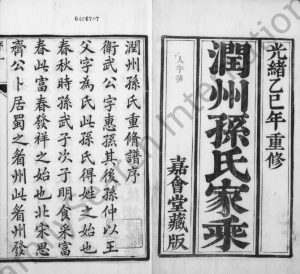 光緒乙巳年重修
潤州孫氏家乘
嘉會堂藏版
潤州孫氏重修譜序
衛武公字惠孫其後孫仲以王
父字為氏此孫氏得姓之始也
春秋時孫武子次子明食采富
春此富春發祥之始也北宋思
齊公卜居蜀之眉州此眉州發